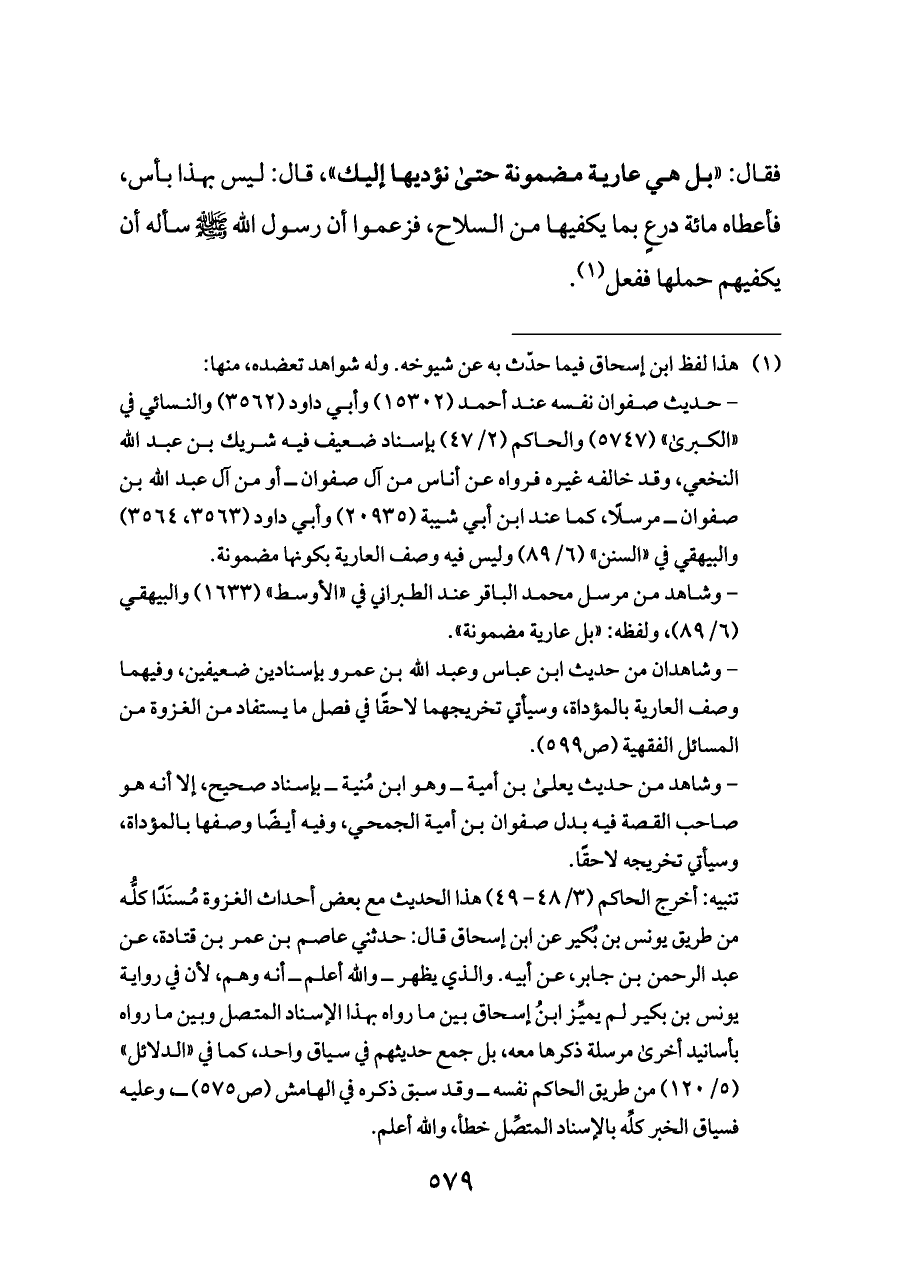 فقال: «بل هي عارية مضمونة حتىٰ نؤديها إليك»، قال: ليس بهذا بأس،
فأعطاه مائة درعٍ بما يكفيها من السلاح، فزعموا أن رسول الله ﷺ سأله أن
يكفيهم حملها ففعل(١).
(١) هذا لفظ ابن إسحاق فيما حدّث به عن شيوخه. وله شواهد تعضده، منها:
– حديث صفوان نفسه عند أحمد (١٥٣٠٢) وأبي داود (٣٥٦٢) والنسائي في
«الكبرىٰ» (٥٧٤٧) والحاكم (٢/ ٤٧) بإسناد ضعيف فيه شريك بن عبد الله
النخعي، وقد خالفه غيره فرواه عن أناس من آل صفوان ــ أو من آل عبد الله بن
صفوان ــ مرسلًا، كما عند ابن أبي شيبة (٢٠٩٣٥) وأبي داود (٣٥٦٣، ٣٥٦٤)
والبيهقي في «السنن» (٦/ ٨٩) وليس فيه وصف العارية بكونها مضمونة.
– وشاهد من مرسل محمد الباقر عند الطبراني في «الأوسط» (١٦٣٣) والبيهقي
(٦/ ٨٩)، ولفظه: «بل عارية مضمونة».
– وشاهدان من حديث ابن عباس وعبد الله بن عمرو بإسنادين ضعيفين، وفيهما
وصف العارية بالمؤداة، وسيأتي تخريجهما لاحقًا في فصل ما يستفاد من الغزوة من
المسائل الفقهية (ص٥٩٩).
– وشاهد من حديث يعلىٰ بن أمية ــ وهو ابن مُنية ــ بإسناد صحيح، إلا أنه هو
صاحب القصة فيه بدل صفوان بن أمية الجمحي، وفيه أيضًا وصفها بالمؤداة،
وسيأتي تخريجه لاحقًا.
تنبيه: أخرج الحاكم (٣/ ٤٨ – ٤٩) هذا الحديث مع بعض أحداث الغزوة مُسنَدًا كلُّه
من طريق يونس بن بُكير عن ابن إسحاق قال: حدثني عاصم بن عمر بن قتادة، عن
عبد الرحمن بن جابر، عن أبيه. والذي يظهر ــ والله أعلم ــ أنه وهم، لأن في رواية
يونس بن بكير لم يميِّز ابنُ إسحاق بين ما رواه بهذا الإسناد المتصل وبين ما رواه
بأسانيد أخرىٰ مرسلة ذكرها معه، بل جمع حديثهم في سياق واحد، كما في «الدلائل»
(٥/ ١٢٠) من طريق الحاكم نفسه ــ وقد سبق ذكره في الهامش (ص٥٧٥) ــ، وعليه
فسياق الخبر كلِّه بالإسناد المتصِّل خطأ، والله أعلم.
٥٧٩